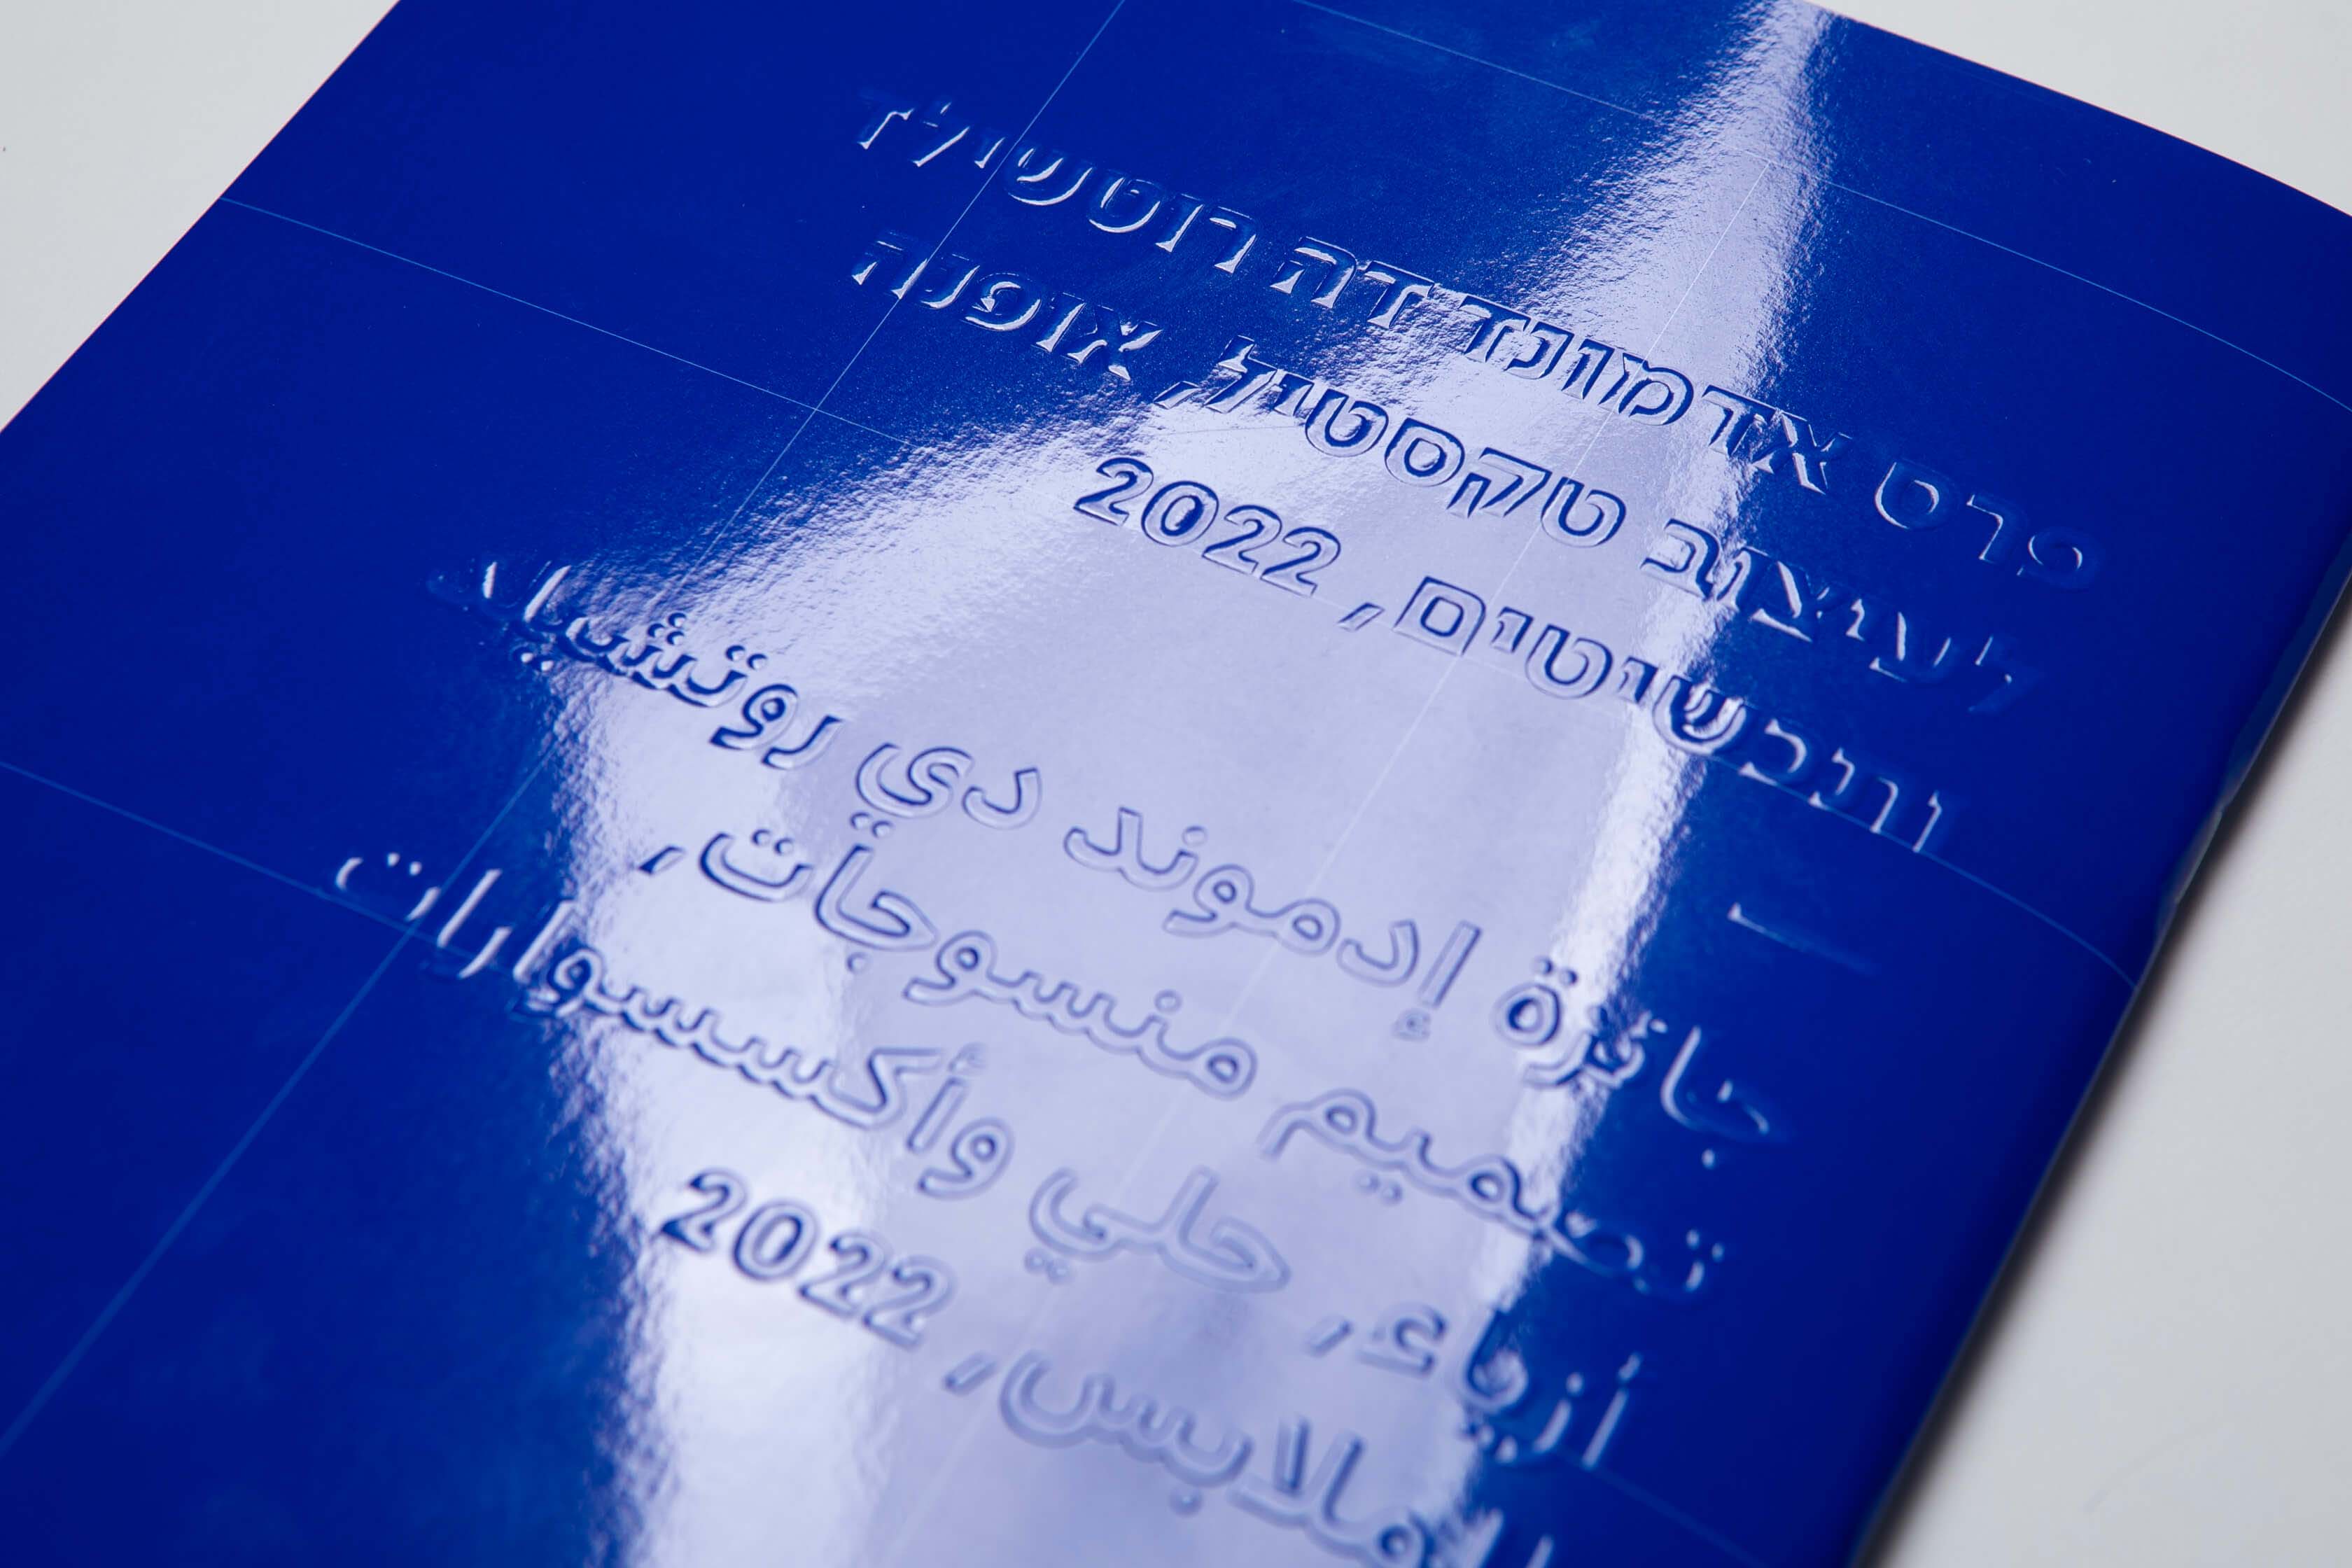 פרס אדמונד דה רוטשילד
לעיצוב טקסטיל, אופנה
ותכשיטים, 2022
—
جائزة إدموند دي روتشيلد
تصميم منسوجات,
أزياء, حلي وأكسسوارات
الملابس, 2022